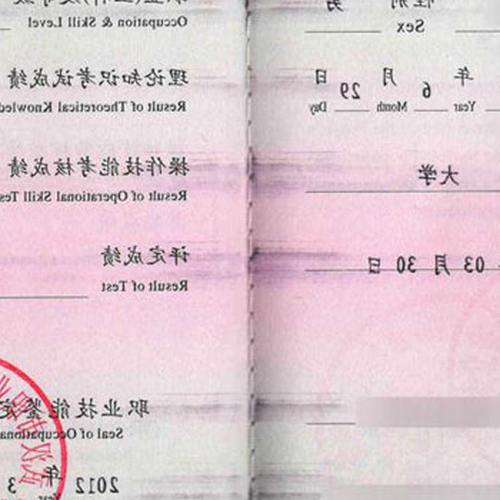 性别 男
Sex
年 6 月 29 日
Year Month Day
大学
03 月 30 日
Occupation & Skill Level
理论知识考试成绩
Result of Theoretical
操作技能考核成绩
Result of Operational Skill
评定成绩
Result of Test
职业技能鉴定
Seal of
2012 年 3